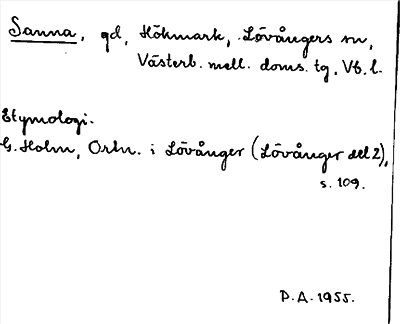 Sanna, gd, Hökmark, Lövångers sn,
Västerb. mell. doms. tg, Vb. l.
Etymologi.
G. Holm, Ortn. i Lövånger (Lövånger del 2),
s. 109.
P.A. 1955.